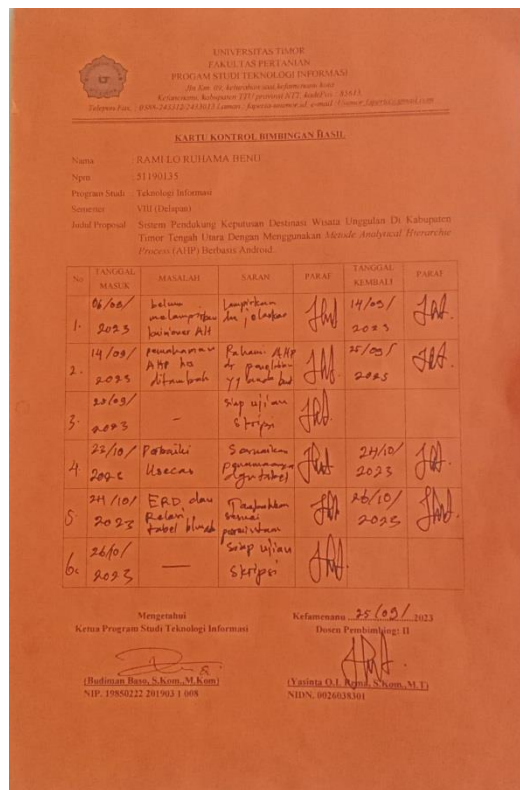 UNIVERSITAS TIMOR
FAKULTAS PERTANIAN
PROGAM STUDI TEKNOLOGI INFORMASI
KARTU KONTROL BIMBINGAN HASIL
Nama : RAMI LO RUHAMA BENU
Npm : 51190135
Program Studi : Teknologi Informasi
Semester : VIII (Delapan)
Judul Proposal : Sistem Pendukung Keputusan Destinasi Wisata Unggulan Di Kabupaten
Timor Tengah Utara Dengan Menggunakan Metode Analytical Hierarchie
Process (AHP) Berbasis Android.
No TANGGAL MASUK MASALAH SARAN PARAF TANGGAL KEMBALI PARAF
1. 06/09/ 2023 belum Lampirkan 14/09/ 2023
2. 14/09/ 2023 pemahaman AHP ditambah Pahami AHP 25/09/ 2023
3. 2023 - siap ujian skripsi
4. 2023 Perbaiki Usecas Sesuaikan 24/10/ 2023
5. 24/10/ 2023 ERD dan Relasi tabel sesuai 26/10/ 2023
6. 26/10/ 2023 — siap ujian skripsi
Mengetahui
Ketua Program Studi Teknologi Informasi
(Budiman Baso, S.Kom.,M.Kom)
NIP. 19850222 201903 1 008
Kefamenanu 25/09/ 2023
Dosen Pembimbing: II
(Yasinta O.L Rema, S.Kom.,M.T)
NIDN. 0026038301